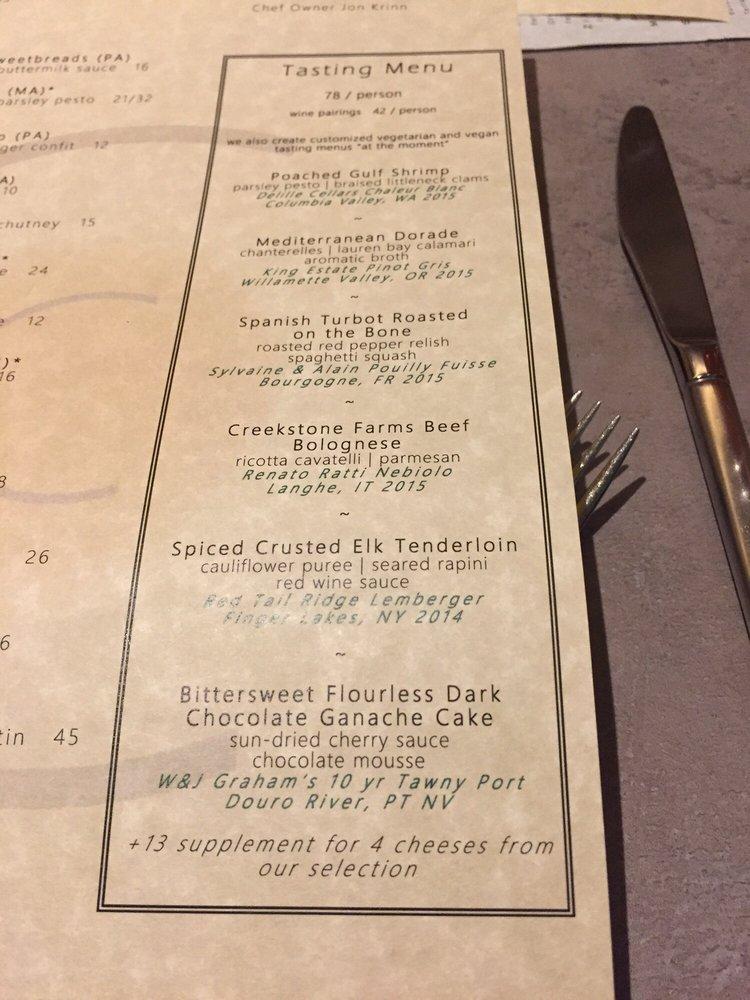 Chef Owner Jon Krinn
weetbreads (PA)
buttermilk sauce 16
(MA)*
parsley pesto 21/32
(PA)
ger confit 12
A)
10
chutney 15
*
e 24
e 12
)*
16
8
26
6
tin 45
Tasting Menu
78 / person
wine pairings 42 / person
we also create customized vegetarian and vegan
tasting menus "at the moment"
Poached Gulf Shrimp
parsley pesto | braised littleneck clams
Delille Cellars Chaleur Blanc
Columbia Valley, WA 2015
~
Mediterranean Dorade
chanterelles | lauren bay calamari
aromatic broth
King Estate Pinot Gris
Willamette Valley, OR 2015
~
Spanish Turbot Roasted
on the Bone
roasted red pepper relish
spaghetti squash
Sylvaine & Alain Pouilly Fuisse
Bourgogne, FR 2015
~
Creekstone Farms Beef
Bolognese
ricotta cavatelli | parmesan
Renato Ratti Nebiolo
Langhe, IT 2015
~
Spiced Crusted Elk Tenderloin
cauliflower puree | seared rapini
red wine sauce
Red Tail Ridge Lemberger
Finger Lakes, NY 2014
~
Bittersweet Flourless Dark
Chocolate Ganache Cake
sun-dried cherry sauce
chocolate mousse
W&J Graham's 10 yr Tawny Port
Douro River, PT NV
+13 supplement for 4 cheeses from
our selection